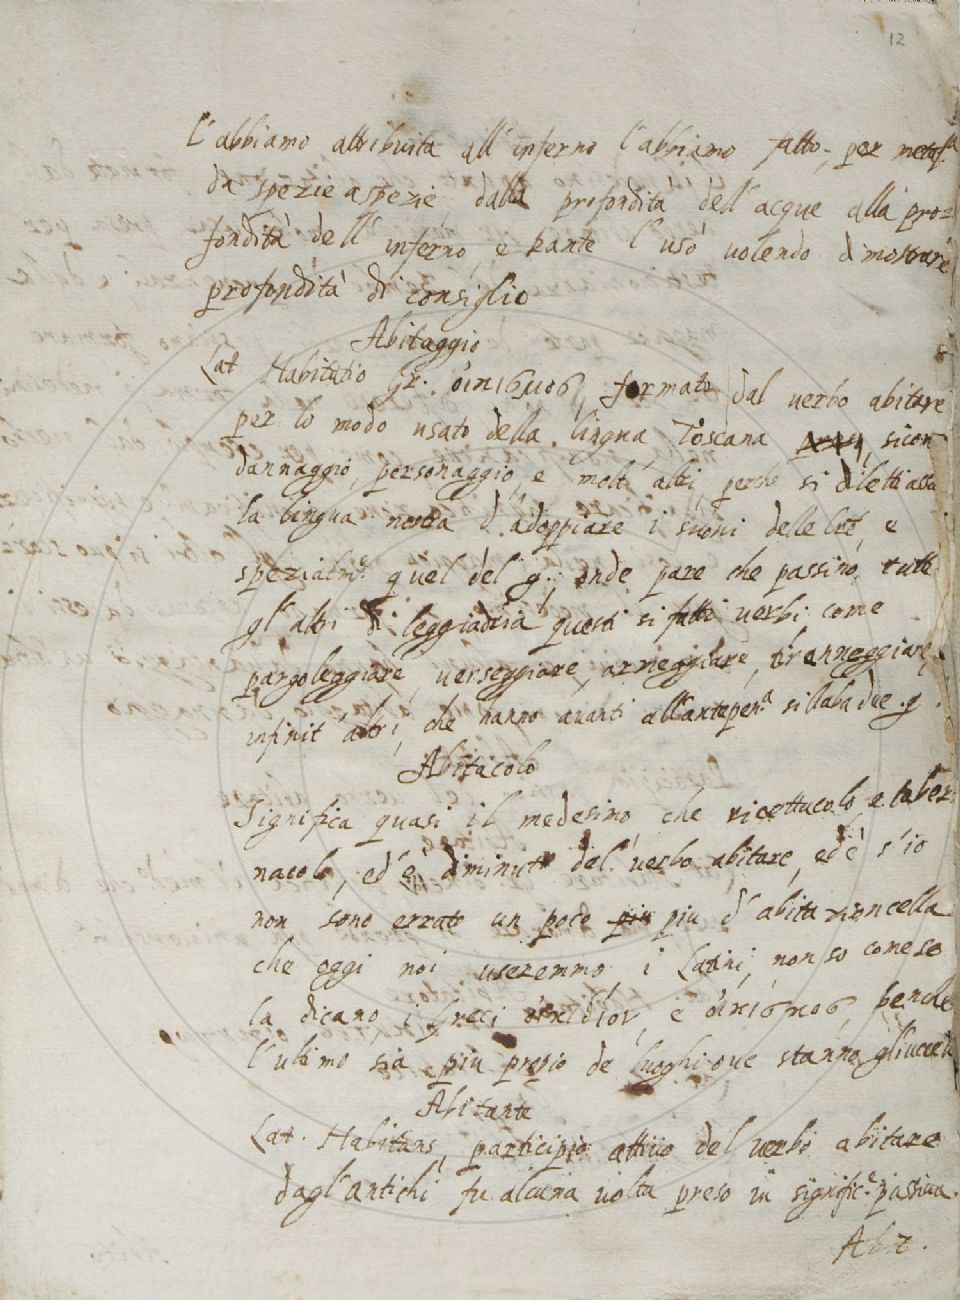 12
l'abbiamo attribuita all'inferno l'abbiamo fatto, per metaf.ª
da spezie a spezie, dalla profondità dell'acque alla pro=
fondità dell'inferno, e Dante l'usò uolendo dimostrare
profondità di consiglio
Abitaggio
Lat. Habitatio Gr. οἰκισμος, formato dal uerbo abitare
per lo modo usato della lingua Toscana, sicon
dannaggio, personaggio, e molti altri, perche si diletti assai
la lingua nostra d'adoppiare i suoni delle lre, e
spezialm.e quel del g, onde pare che passino tutti
gl'altri di leggiadria questi si fatti uerbi come
pargoleggiare, uerseggiare, armeggiare, tiranneggiare,
infinit'altri, che hanno auanti all'antepen.ª sillaba due g.
Abitacolo
Significa quasi il medesimo che ricettacolo, e taber
nacolo, ed è diminut.º del uerbo abitare, ed è s'io
non sono errato un poco piu d'abitazioncella
che oggi noi useremmo, i Latini, non so come se
la dicano, i Greci οἰκιδιον, e οἰκισμος, benche
l'ultimo sia piu propio de luoghi oue stanno gl'uccelli
Abitante
Lat. Habitans, participio attiuo del uerbo abitare
dagl'antichi fu alcuna uolta preso in signific.e passiua.
Abit.